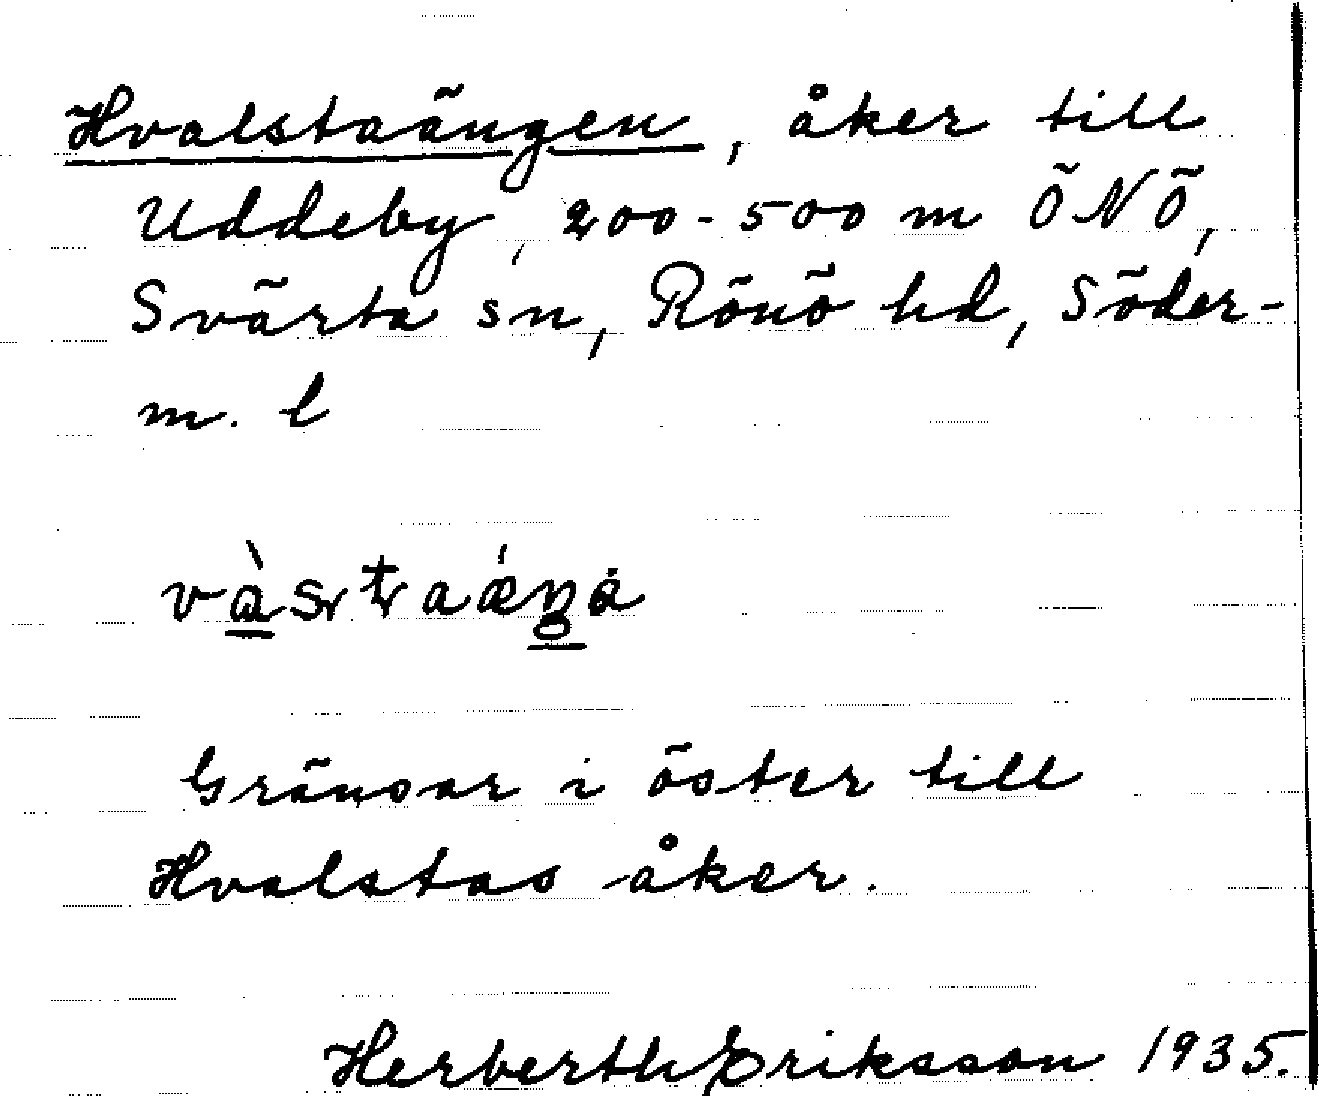 Hvalstaängen, åker till
Uddeby, 200-500 m ÖNÖ,
Svärta sn, Rönö hd, Söder-
m. l
Gränsar i öster till
Hvalstas åker.
Herberth Eriksson 1935.